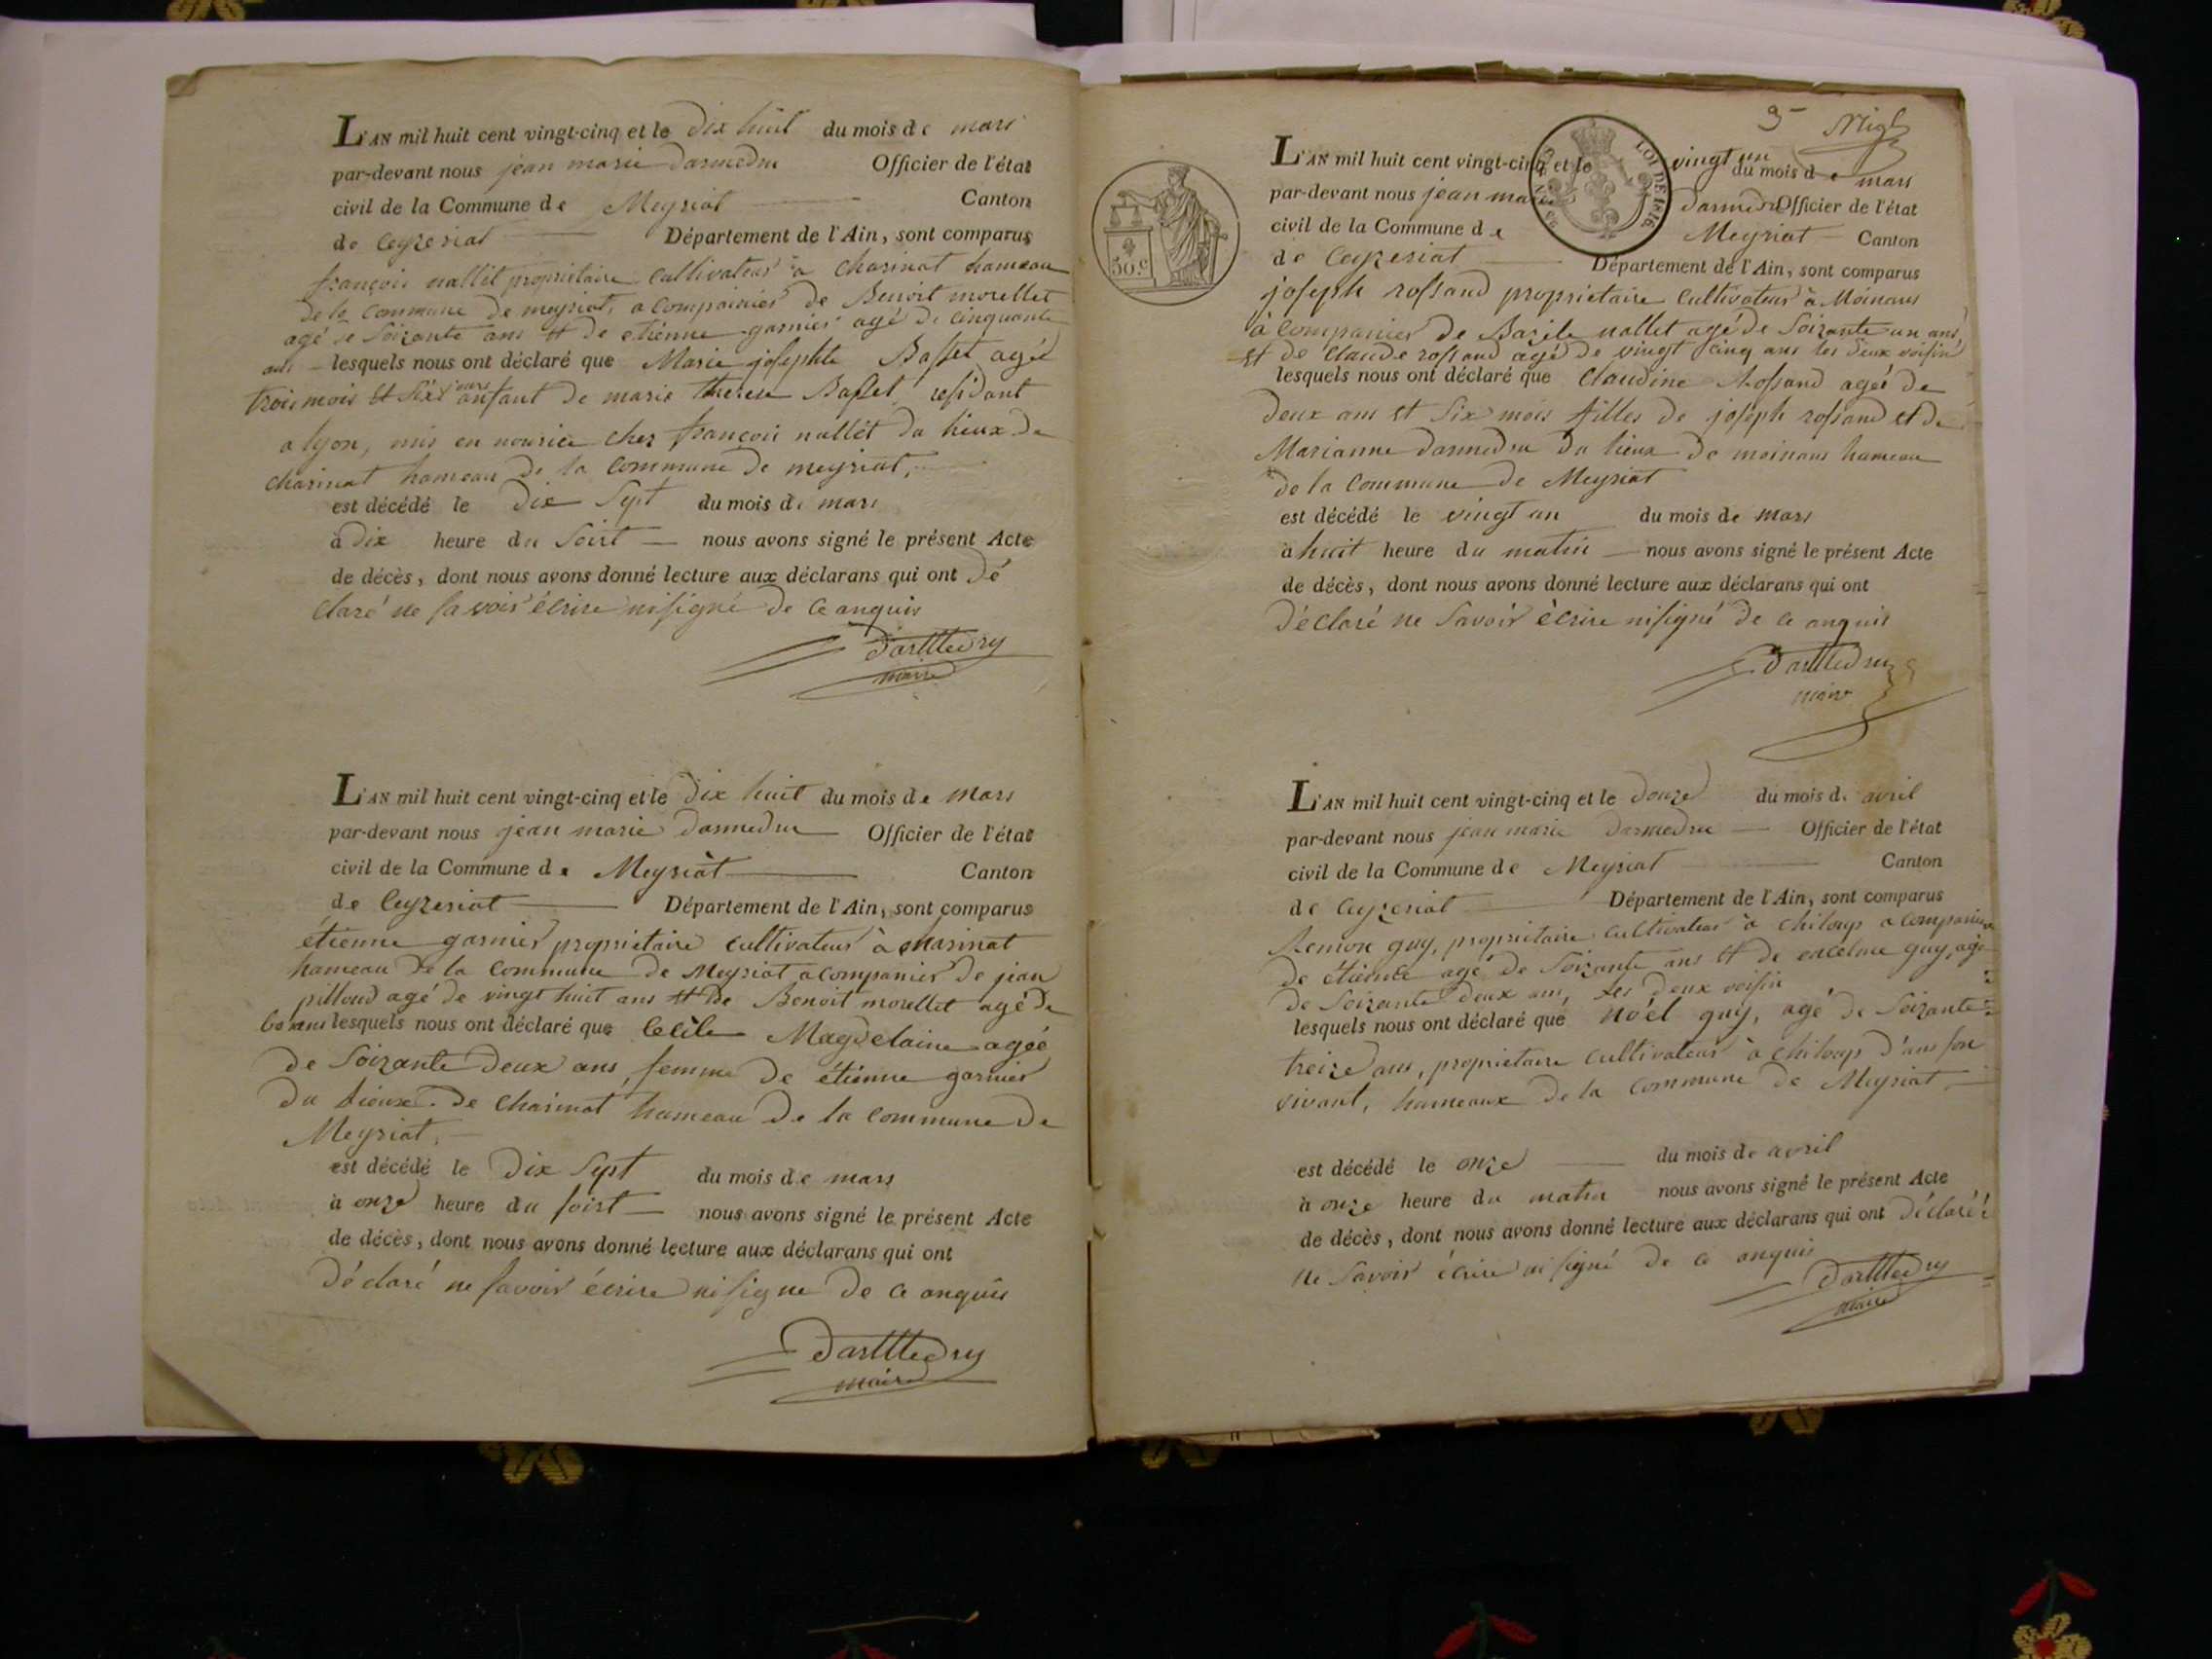 L'AN mil huit cent vingt-cinq et le dix huit du mois de mars
par-devant nous jean marie darmedru Officier de l'état
civil de la Commune de Meyriat Canton
de Ceyzeriat Département de l'Ain, sont comparus
françois nallet propriétaire cultivateur a charinat hameau
de la Commune de meyriat, a compainiés de Benoit morellet
agé de soizante ans et de etienne garnier agé de cinquante
ans lesquels nous ont déclaré que Marie josephte Basset agée
trois mois et six jours anfant de marie therese Basset, residant
a lyon, mis en nourice chez françois nallet du lieux de
charinat hameau de la Commune de meyriat,
est décédé le dix sept du mois de mars
à dix heure du soirt nous avons signé le présent Acte
de décès, dont nous avons donné lecture aux déclarans qui ont dé
claré ne savoir écrire ni signé de ce anquis
Darmedru
maire
L'AN mil huit cent vingt-cinq et le dix huit du mois de mars
par-devant nous jean marie darmedru Officier de l'état
civil de la Commune de Meyriat Canton
de Ceyzeriat Département de l'Ain, sont comparus
étienne garnier propriétaire cultivateur à charinat
hameau de la Commune de Meyriat acompanier de jean
pilloud agé de vingt huit ans et de Benoit morellet agé de
60 ans lesquels nous ont déclaré que Cecile Magdelaine agéé
de soizante deux ans, femme de étienne garnier
du lieux de charinat hameau de la commune de
Meyriat,
est décédé le dix sept du mois de mars
à onze heure du soirt nous avons signé le présent Acte
de décès, dont nous avons donné lecture aux déclarans qui ont
déclaré ne savoir écrire ni signe de ce anquis
Darmedru
maire
9
L'AN mil huit cent vingt-cinq et le vingt un du mois de mars
LOI DE 1816
par-devant nous jean marie darmedru Officier de l'état
civil de la Commune de Meyriat Canton
50.c
de Ceyzeriat Département de l'Ain, sont comparus
joseph rossand propriétaire cultivateur à Moinans
à companier de Bazile nallet agé de soizante un ans,
et de claude rossand agé de vingt cinq ans les deux voisin
lesquels nous ont déclaré que Claudine Rossand ageé de
deux ans et six mois filles de joseph rossand et de
Marianne darmedru du lieux de moinans hameau
de la Commune de Meyriat
est décédé le vingt un du mois de mars
à huit heure du matin nous avons signé le présent Acte
de décès, dont nous avons donné lecture aux déclarans qui ont
déclaré ne savoir écrire ni signé de ce anquis
Darmedru
maire
L'AN mil huit cent vingt-cinq et le douze du mois de avril
par-devant nous jean marie darmedru Officier de l'état
civil de la Commune de Meyriat Canton
de Ceyzeriat Département de l'Ain, sont comparus
guy, propriétaire cultivateur à chiloup acompanier
de étienne agé de soizante ans et de encelme guy, agé
de soizante deux ans, les deux voisin
lesquels nous ont déclaré que Noél guy, agé de soizante
treize ans, propriétaire cultivateur à chiloup d'ans son
vivant, hameaux de la commune de Meyriat,
est décédé le onze du mois de avril
à onze heure du matin nous avons signé le présent Acte
de décès, dont nous avons donné lecture aux déclarans qui ont déclaré
ne savoir écrire ni signé de ce anquis
Darmedru
maire